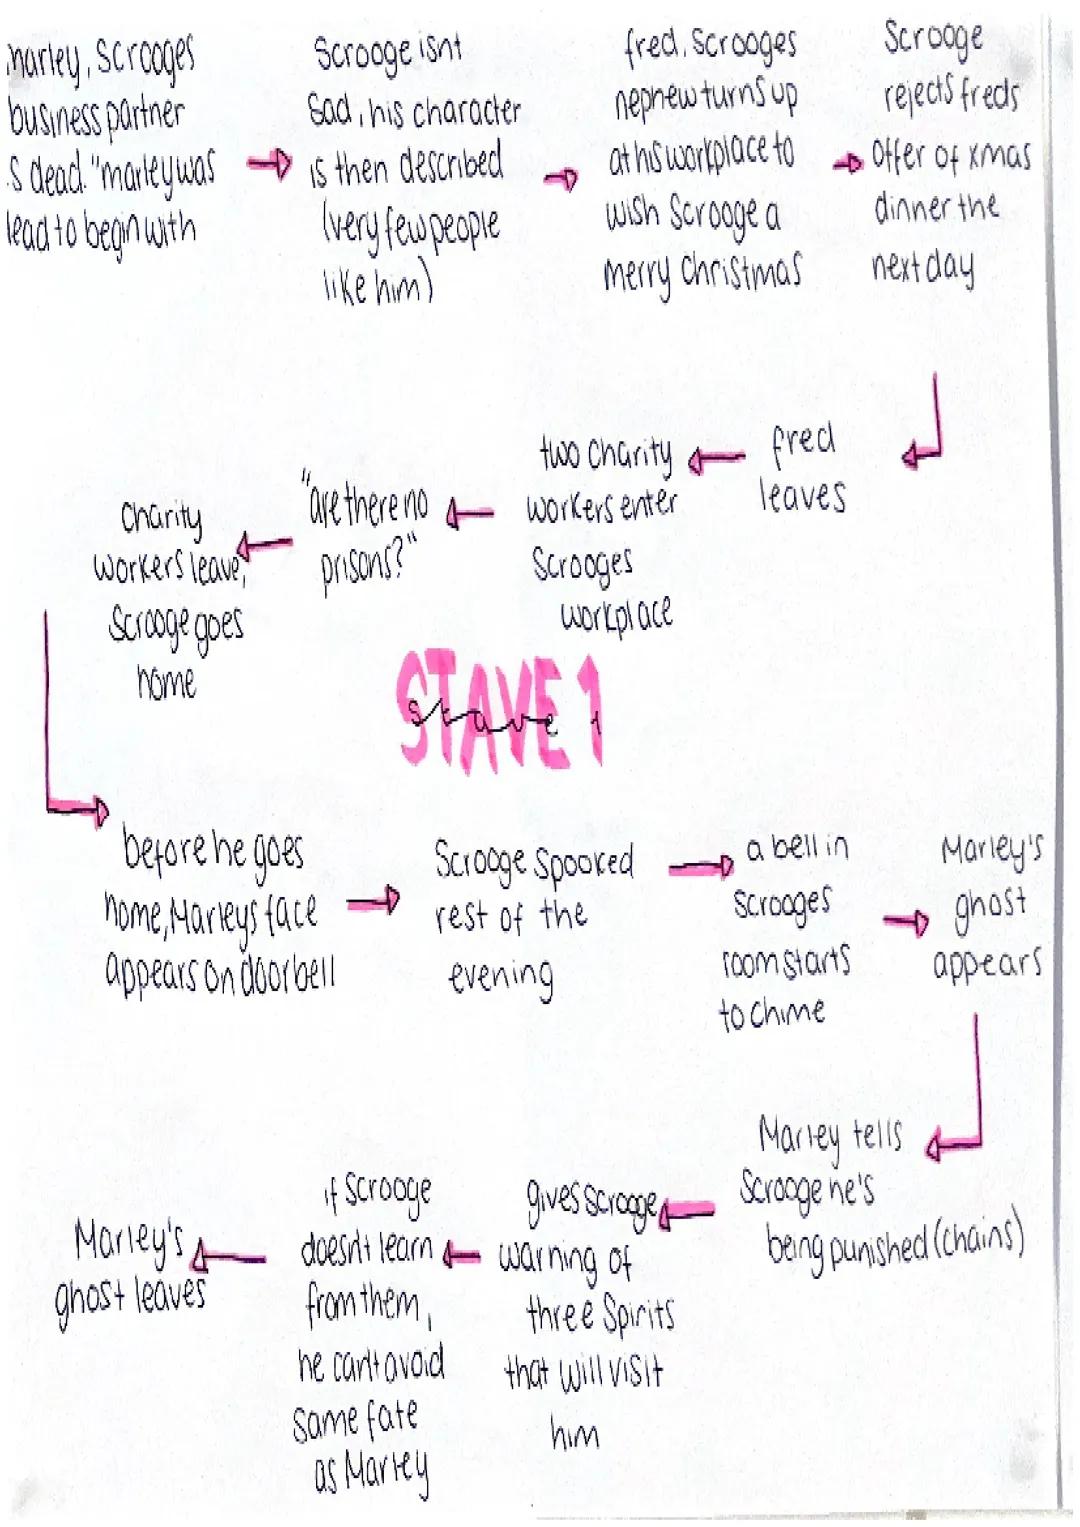 marley, Scrooges
business partner
is dead. "marley was
dead to begin with
Scrooge isnt
sad, his character
is then described
(very few people
like him)
fred, Scrooges
nephew turns up
at his workplace to
wish Scrooge a
merry Christmas
Scrooge
rejects freds
offer of xmas
dinner the
next day
fred
leaves
two charity
workers enter
Scrooges
workplace
"are there no
prisons?"
Charity
workers leave,
Scrooge goes
home
STAVE 1
stave 1
before he goes
home, Marleys face
appears on doorbell
Scrooge spooked
rest of the
evening
a bell in
scrooges
room starts
to chime
Marley's
ghost
appears
Marley tells
Scrooge he's
being punished (chains)
gives scrooge
warning of
three Spirits
that will visit
him
if Scrooge
doesn't learn
from them,
he can't avoid
same fate
as Marley
Marley's
ghost leaves